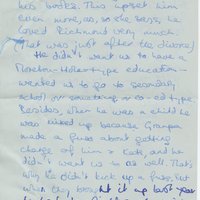 his books. This upset him
even more, as, so she says, he
loved Richmond very much.
(that was just after the divorce)
He didn't want us to have a
Moreton-Hall type education -
wanted us to go to secondary
school or something or co-ed type.
Besides when he was a child he
was mixed up because Granpa
made a fuss about getting
charge of him & Kath, and he
didn't want us to as well. That's
why he didn't kick up a fuss. But
when they brought it up last year